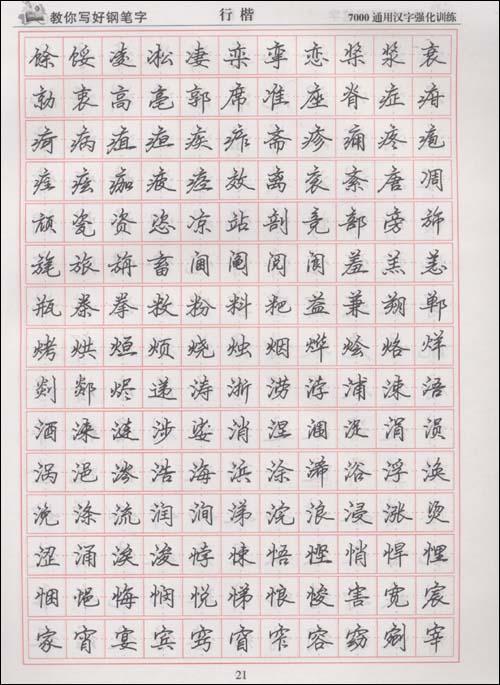 教你写好钢笔字 行楷 7000通用汉字强化训练
馀馁凌凇凄栾挛恋桨浆衰
勍衷高亳郭席准座脊症疳
疴病疽疸疾痄斋疹痈疼疱
疰痃痂疲痉效离衮紊唐凋
颃瓷资恣凉站剖竞部旁旆
旄旅旃畜阃阄阅阆羞羔恙
瓶桊拳敉粉料粑益兼朔郸
烤烘烜烦烧烛烟烨烩烙烊
剡郯烬递涛浙涝浡浦涑浯
酒涞涟涉娑消涅涠浞涓涢
涡浥涔浩海浜涂浠浴浮涣
浼涤流润涧涕浣浪浸涨烫
涩涌涘浚悖悚悟悭悄悍悝
悃悒悔悯悦悌悢悛害宽宸
家宵宴宾窍窅窄容窈剜宰
21